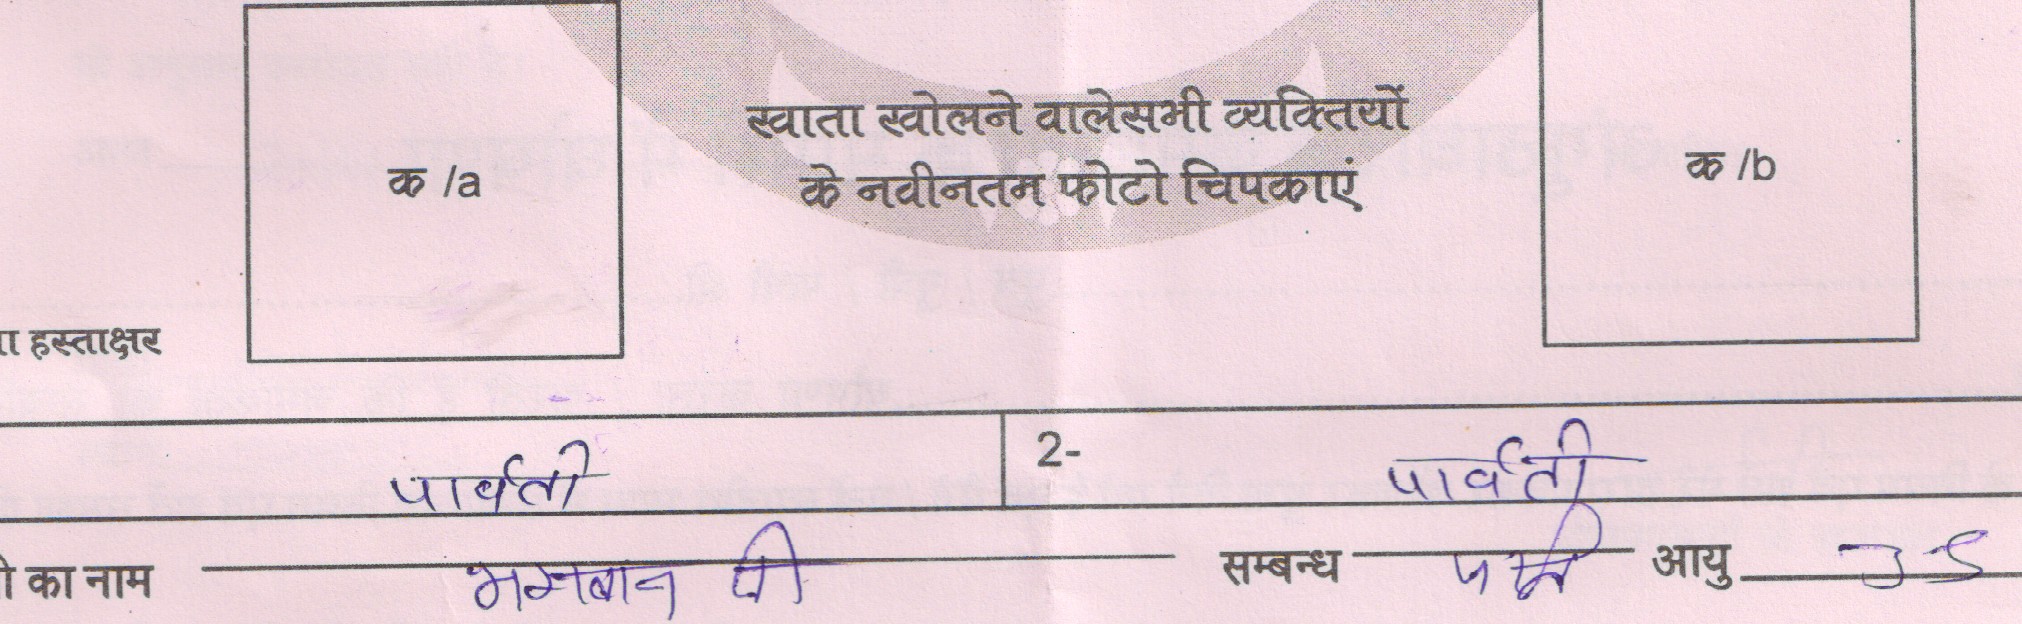 क /a
खाता खोलने वालेसभी व्यक्तियों
के नवीनतम फोटो चिपकाएं
क /b
हस्ताक्षर
पार्वती 2- पार्वती
का नाम सम्बन्ध आयु